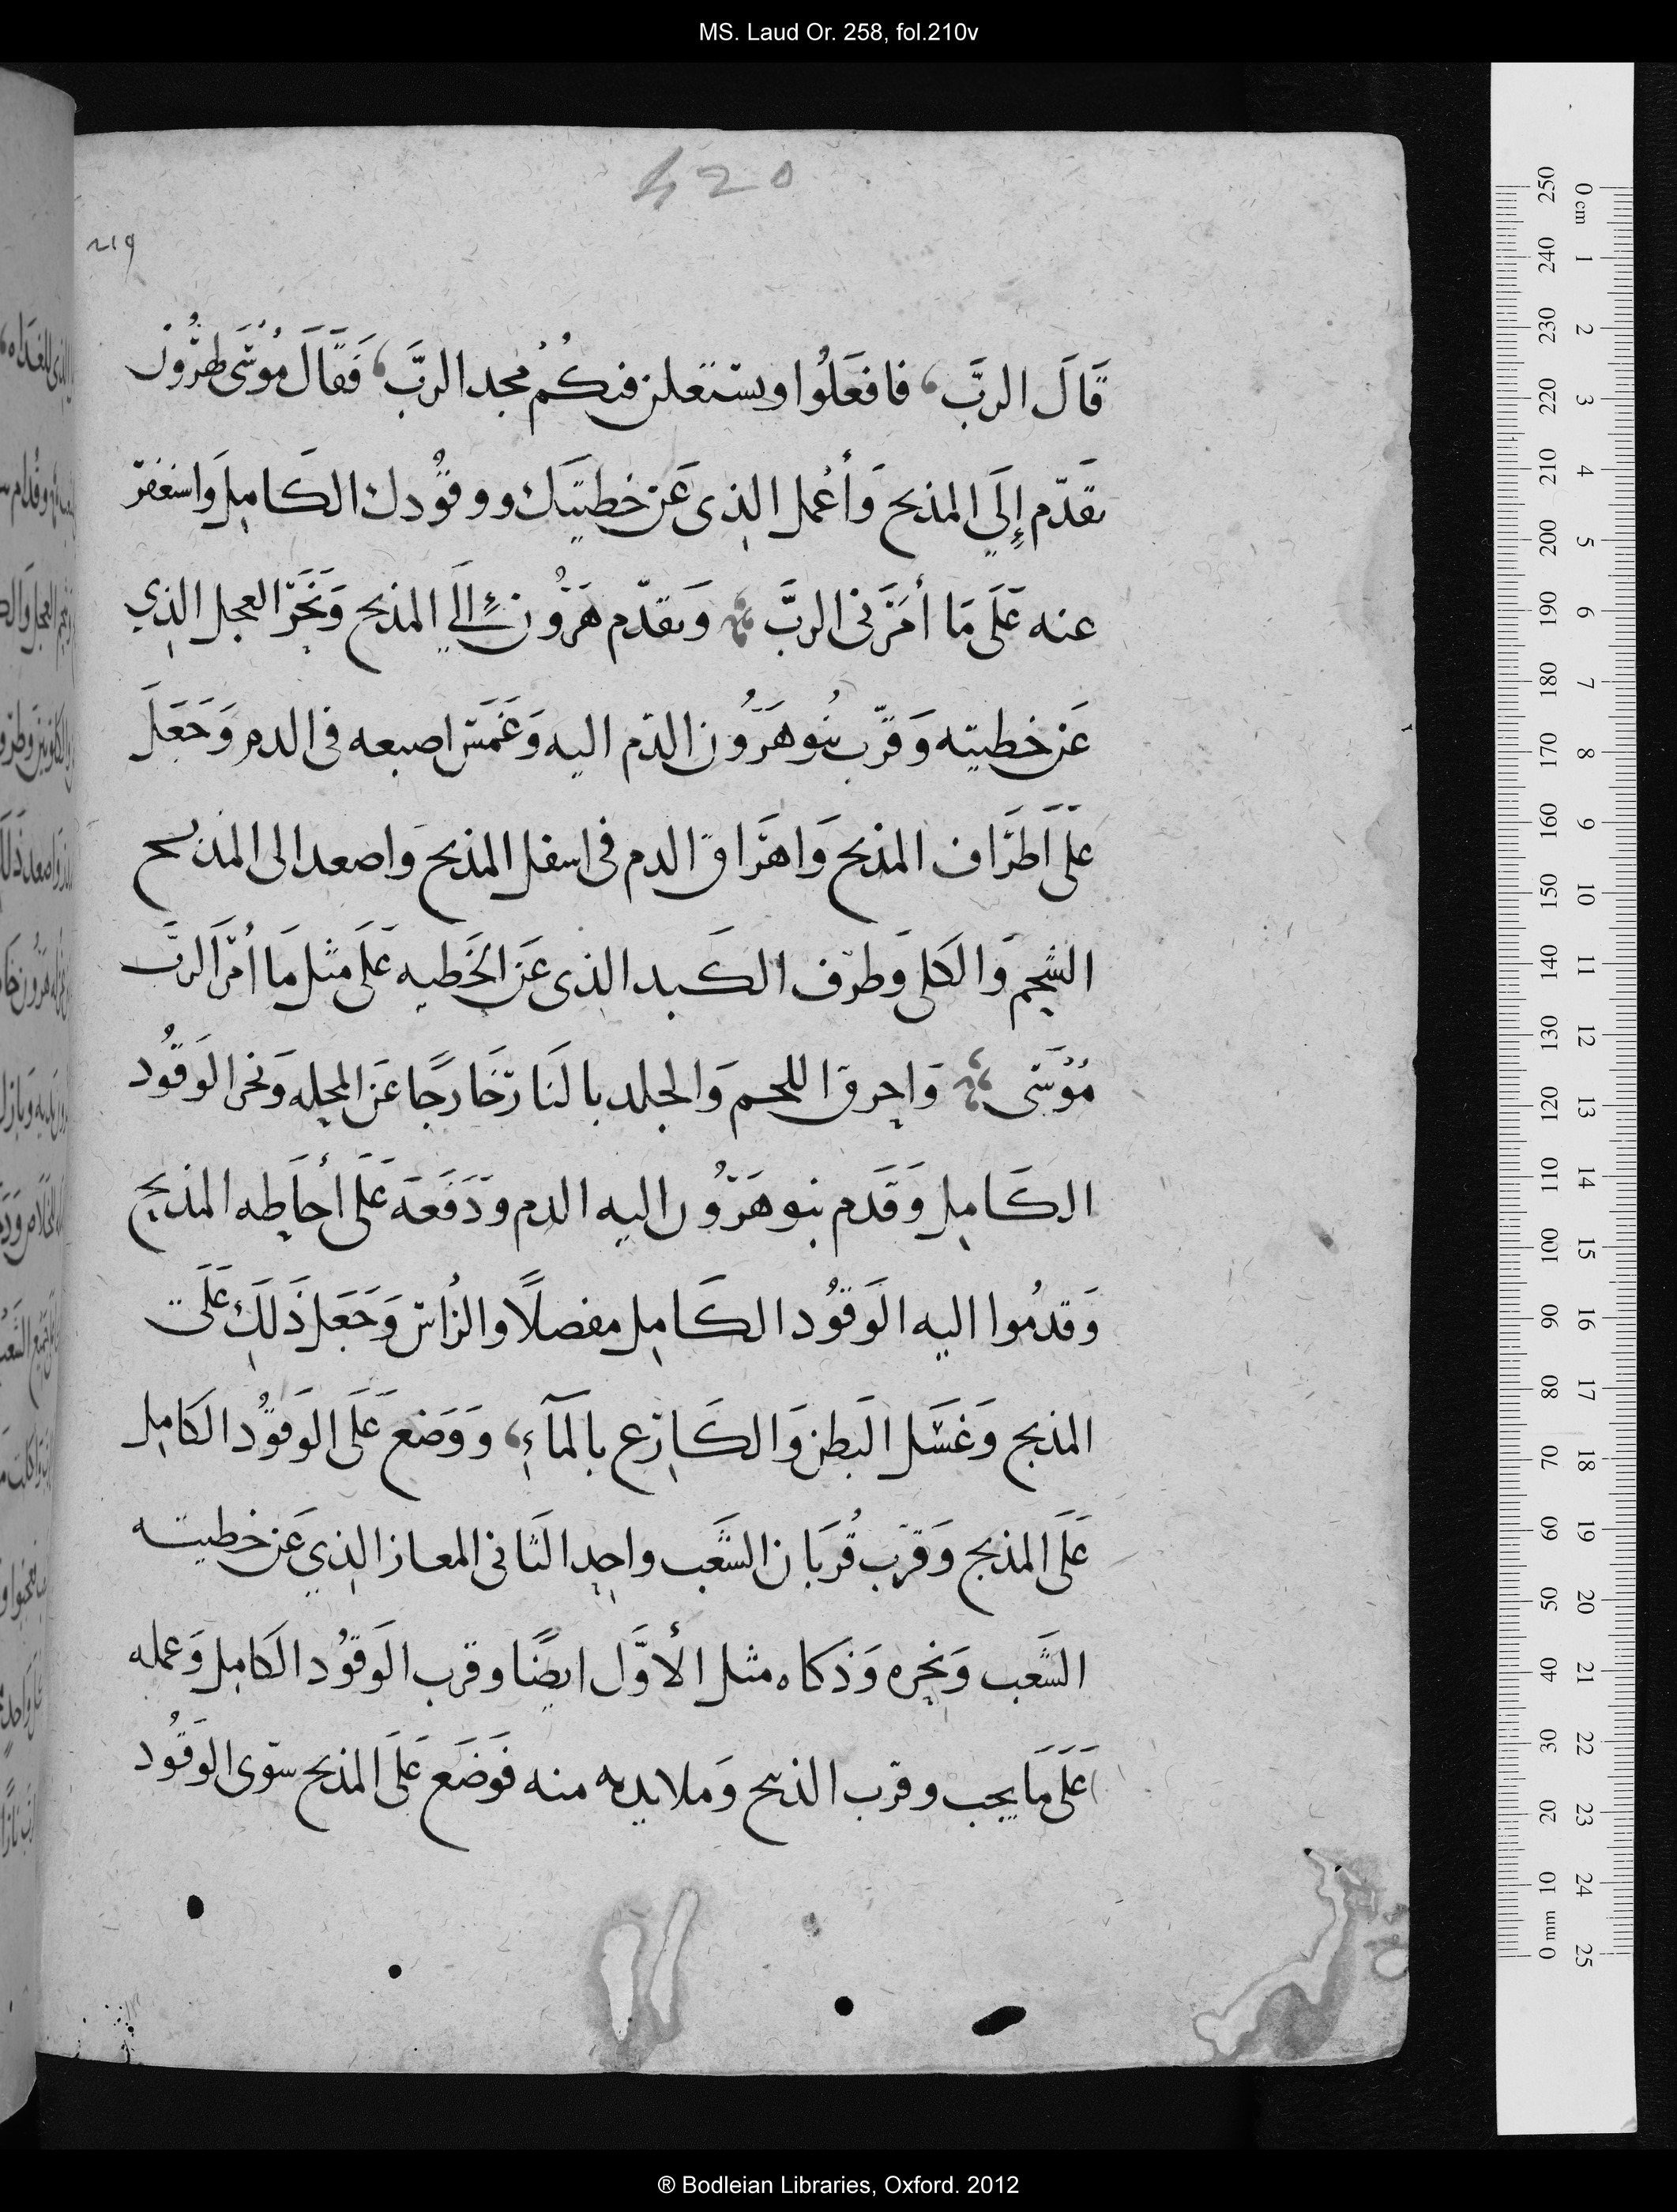 MS. Laud Or. 258, fol.210v
420
219
قَالَ الربَّ، فافعَلُوا ويستعلن فيكُم مُجد الربَّ، فَقَالَ مُوسَى لهرُون
تقدّم إِلَي المذبح وَأعْمل الذِى عَن خطيتِك ووقُودك الكَامِل وَاستغفر
عنه عَلَى مَا أمَرَنى الربَّ وَتقدّم هَرُون إلَي المذبح وَنَحَر العجل الذِي
عَن خطيته وَقرّب بنُو هَرُون الدّم اليه وَغَمَس اصبعه فى الدم وَجَعَلَ
عَلَى اَطَرَاف المذبح وَاهَراق الدم فى اسفل المذبح وَاصعد الى المذبح
الشحِم وَالكلى وَطرَف الكَبد الذِى عَن الخَطيه عَلَى مثل مَا اُمرَ الربَّ
مُوُسَى وَاحرق اللحم وَالجلد بالنَار خَارجًا عَن المحله وَنحر الوَقُود
الكَامِل وَقَدم بنو هَرُون اليه الدم وَدَفَعَه عَلَى أحَاطِه المذبح
وَقدمُوا اليه الوَقُود الكَامِل مفصلاً والرُاس وَجَعَل ذَلِكَ عَلَى
المذبح وَغَسَل البَطن وَالكَارِع بالمَآءِ، وَوَضع عَلَى الوَقُود الكَامِل
عَلَى المذبح وَقرّب قُربَان الشَعب واحِد الثَانى المعاز الذِي عَن خطيته
الشَعب وَنحِره وَذكاه مثل الأوَّل ايضًا وقرب الوَقُود الكَامِل وَعمله
عَلَى مَا يجب وقرب الذبح وَملا يديه منه فَوَضَع عَلَى المذبح سوى الوَقُود
® Bodleian Libraries, Oxford. 2012